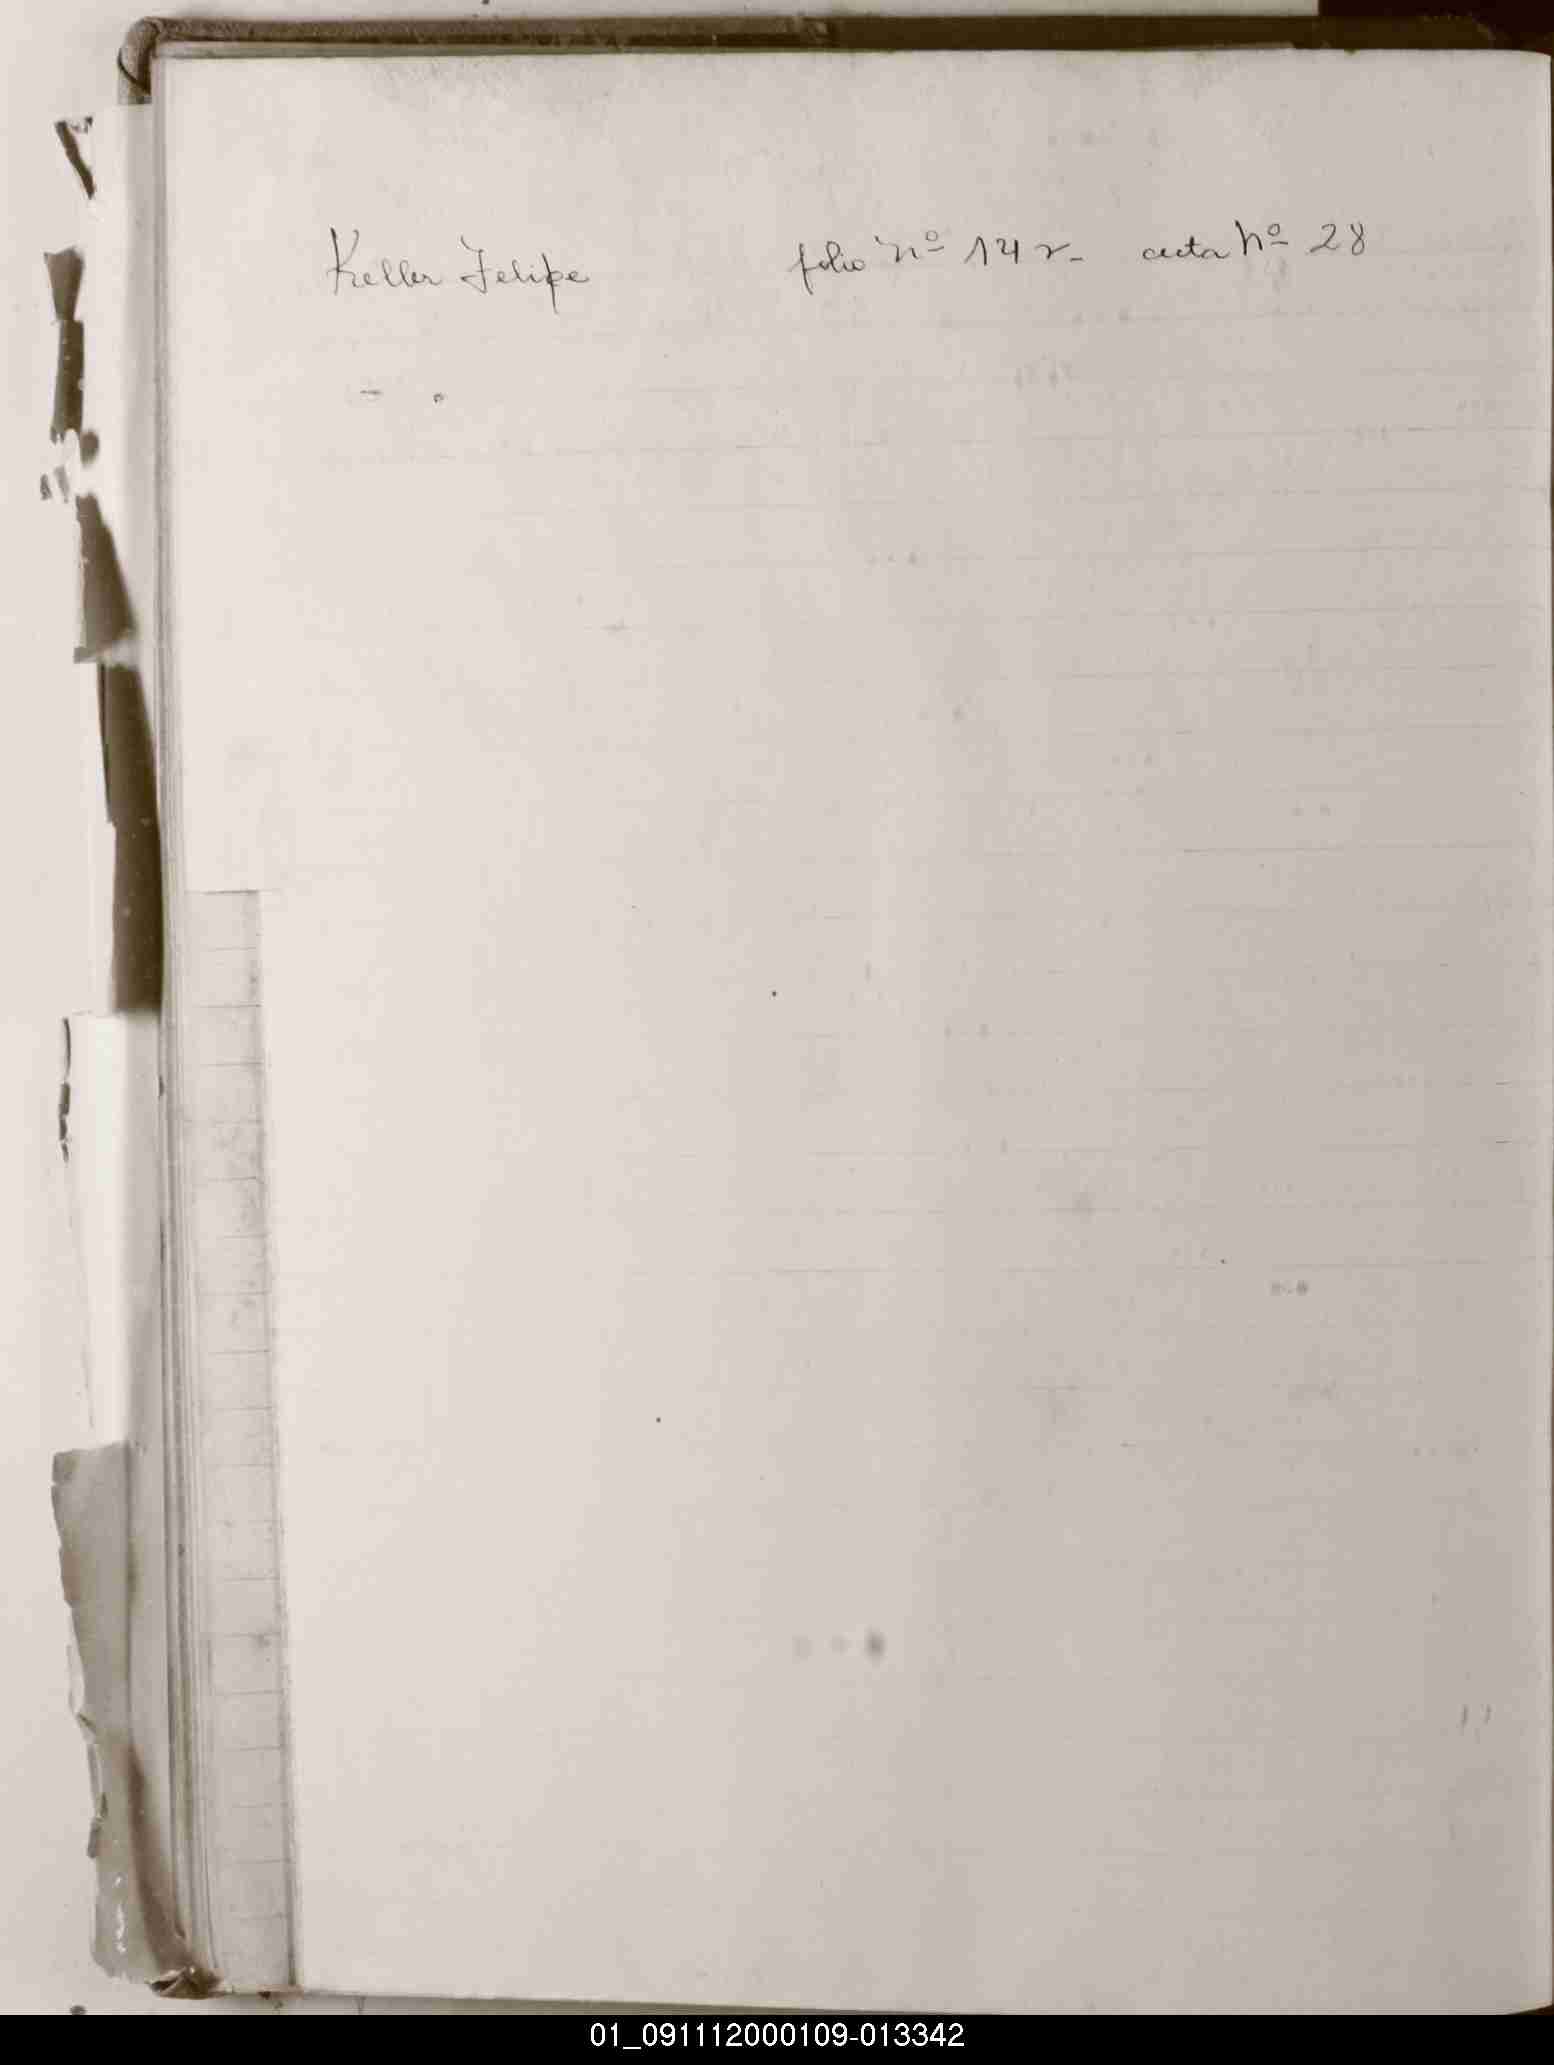 Keller Felipe folio Nº 14 r- acta Nº 28
01_091112000109-013342